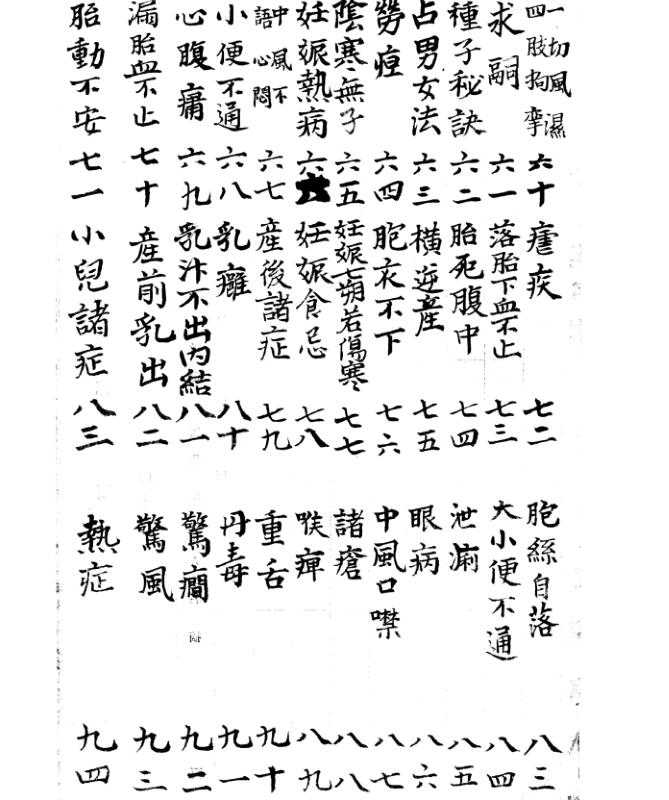 一切風濕
四肢拘攣 六十
求嗣 六一
種子秘訣 六二
占男女法 六三
勞 六四
陰寒無子 六五
妊娠熱病 六六
中風不
語心悶 六七
小便不通 六八
心腹痛 六九
漏胎血不止 七十
胎動不安 七一
瘧疾 七二
落胎下血不止 七三
胎死腹中 七四
橫逆産 七五
胞衣不下 七六
妊娠七朔若傷寒 七七
妊娠食忌 七八
産後諸症 七九
乳癰 八十
乳汁不出内結 八一
産前乳出 八二
小兒諸症 八三
胞絲自落 八三
大小便不通 八四
泄痢 八五
眼病 八六
中風口噤 八七
諸瘡 八八
喉痺 八九
重舌 九十
丹毒 九一
驚癎 九二
驚風 九三
熱症 九四